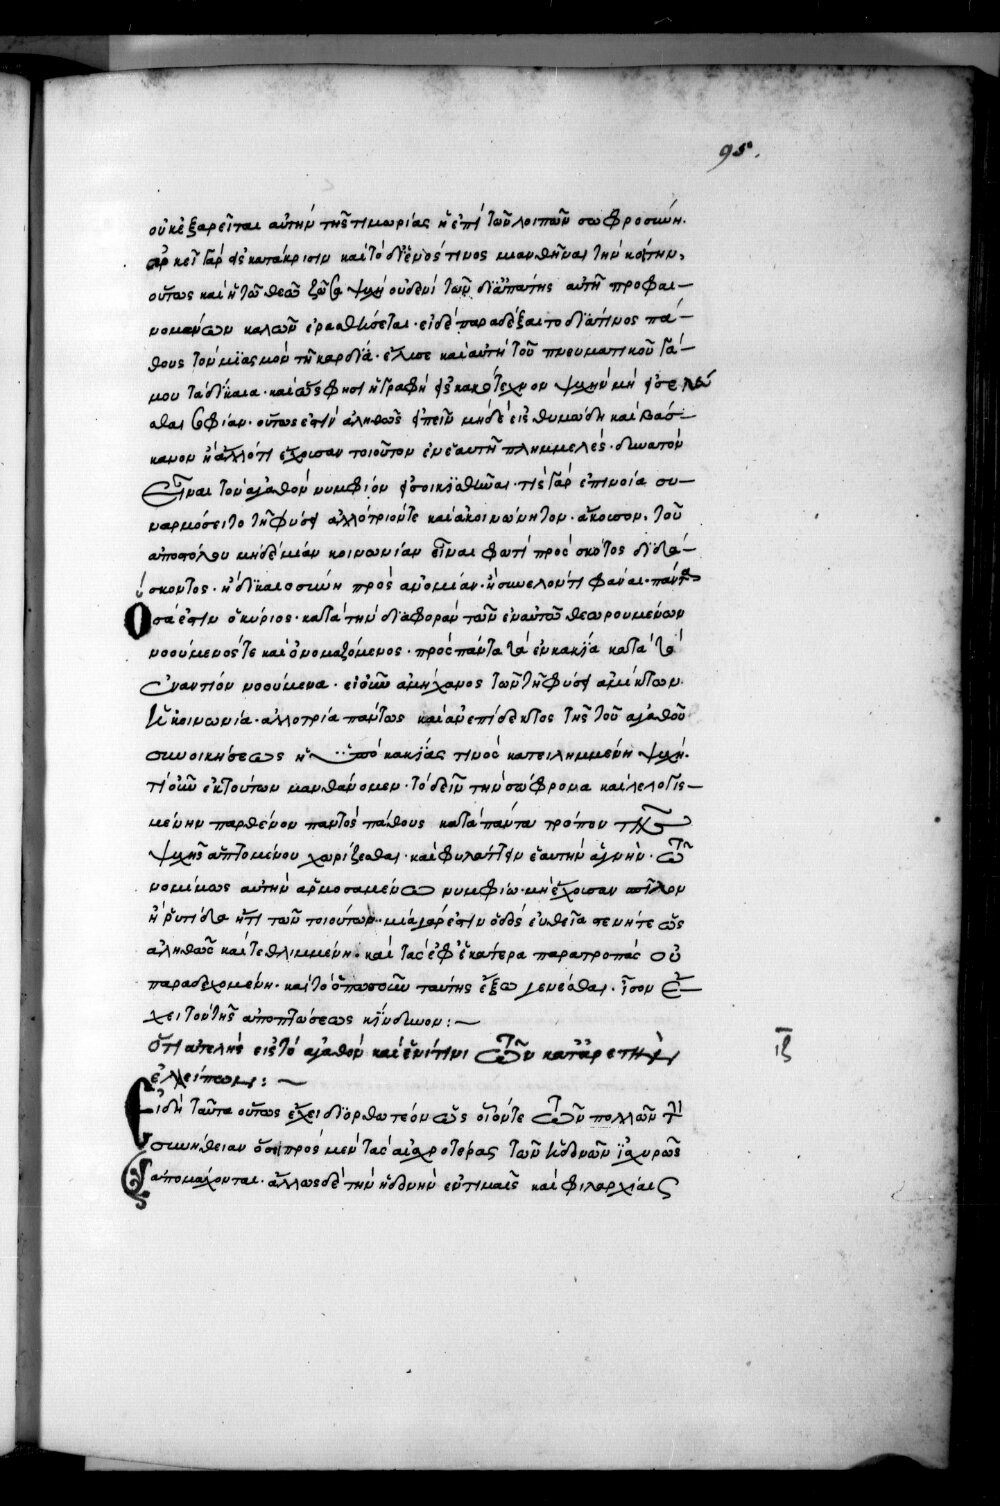 95.
οὐκ ἐξαρεῖται αὐτὴν τῆς τιμωρίας ἡ ἐπὶ τῶν λοιπῶν σωφροσύνη.
ἀρκεῖ γὰρ εἰς κατάκρισιν καὶ τὸ δι' ἑνός τινος μιανθῆναι τὴν κοίτην,
οὕτως καὶ ἡ τῷ θεῷ ζῶσα ψυχὴ οὐδενὶ τῶν δι' ἀπάτης αὐτῇ προφαι-
νομένων καλῶν ἐρασθήσεται. εἰ δὲ παραδέξαιτο διά τινος πά-
θους τὸν μιασμὸν τῇ καρδίᾳ. ἔλυσε καὶ αὐτὴ τοῦ πνευματικοῦ γά-
μου τὰ δίκαια. καὶ ὥς φησι ἡ γραφὴ εἰς κακότεχνον ψυχὴν μὴ εἰσελεύ
σθαι σοφίαν. οὕτως ἐστὶν ἀληθῶς εἰπεῖν μηδὲ εἰς θυμώδη καὶ βάσ-
κανον ἢ ἄλλό τι ἔχουσαν τοιοῦτον ἐν ἑαυτῇ πλημμελές. δυνατὸν
εἶναι τὸν ἀγαθὸν νυμφίον εἰσοικισθῆναι. τίς γὰρ ἐπινοία συ-
ναρμόσει τὸ τῇ φύσει ἀλλότριόν τε καὶ ἀκοινώνητον. ἄκουσον. τοῦ
ἀποστόλου μηδεμίαν κοινωνίαν εἶναι φωτὶ πρὸς σκότος διδά-
σκοντος. ἢ δικαιοσύνη πρὸς ἀνομίαν. ἢ συνελόντι φάναι. πάντα
ὅσα ἐστὶν ὁ κύριος. κατὰ τὴν διαφορὰν τῶν ἐν αὐτῷ θεωρουμένων
νοούμενός τε καὶ ὀνομαζόμενος. πρὸς πάντα τὰ ἐν κακίᾳ κατὰ τὸ
ἐναντίον νοούμενα. εἰ οὖν ἀμήχανος τῶν τῇ φύσει ἀμίκτων
ἡ κοινωνία. ἀλλοτρία πάντως καὶ ἀνεπίδεκτος τῆς τοῦ ἀγαθοῦ
συνοικήσεως ἡ ὑπὸ κακίας τινὸς κατειλημμένη ψυχή.
τί οὖν ἐκ τούτων μανθάνομεν. τὸ δεῖν τὴν σώφρονα καὶ λελογισ-
μένην παρθένον παντὸς πάθους κατὰ πάντα τρόπον τῆς
ψυχῆς ἁπτομένου χωρίζεσθαι. καὶ φυλάττειν ἑαυτὴν ἁγνὴν. τῷ
νομίμως αὐτὴν ἁρμοσαμένῳ νυμφίῳ. μὴ ἔχουσαν σπῖλον
ἢ ῥυτίδα ἤ τι τῶν τοιούτων. μία γάρ ἐστιν ὁδὸς εὐθεῖα στενή τε ὡς
ἀληθῶς καὶ τεθλιμμένη. καὶ τὰς ἐφ' ἑκάτερα παρατροπὰς οὐ
παραδεχομένη. καὶ τὸ ὁπωσοῦν ταύτης ἔξω γενέσθαι. ἴσον ἔ-
χει τὸν τῆς ἀποπτώσεως κίνδυνον:~
ὅτι ἀτελὴς εἰς τὸ ἀγαθὸν καὶ ἔν τινι τῶν κατ' ἀρετὴν
ἐλλείπων:~
ιβ
Εἰ δὴ ταῦτα οὕτως ἔχει διορθωτέον ὡς οἷόν τε τῶν πολλῶν τὴν
συνήθειαν ὅσοι πρὸς μὲν τὰς αἰσχροτέρας τῶν ἡδονῶν ἰσχυρῶς
ἀπομάχονται. ἄλλως δὲ τὴν ἡδονὴν ἐν τιμαῖς καὶ φιλαρχίαις